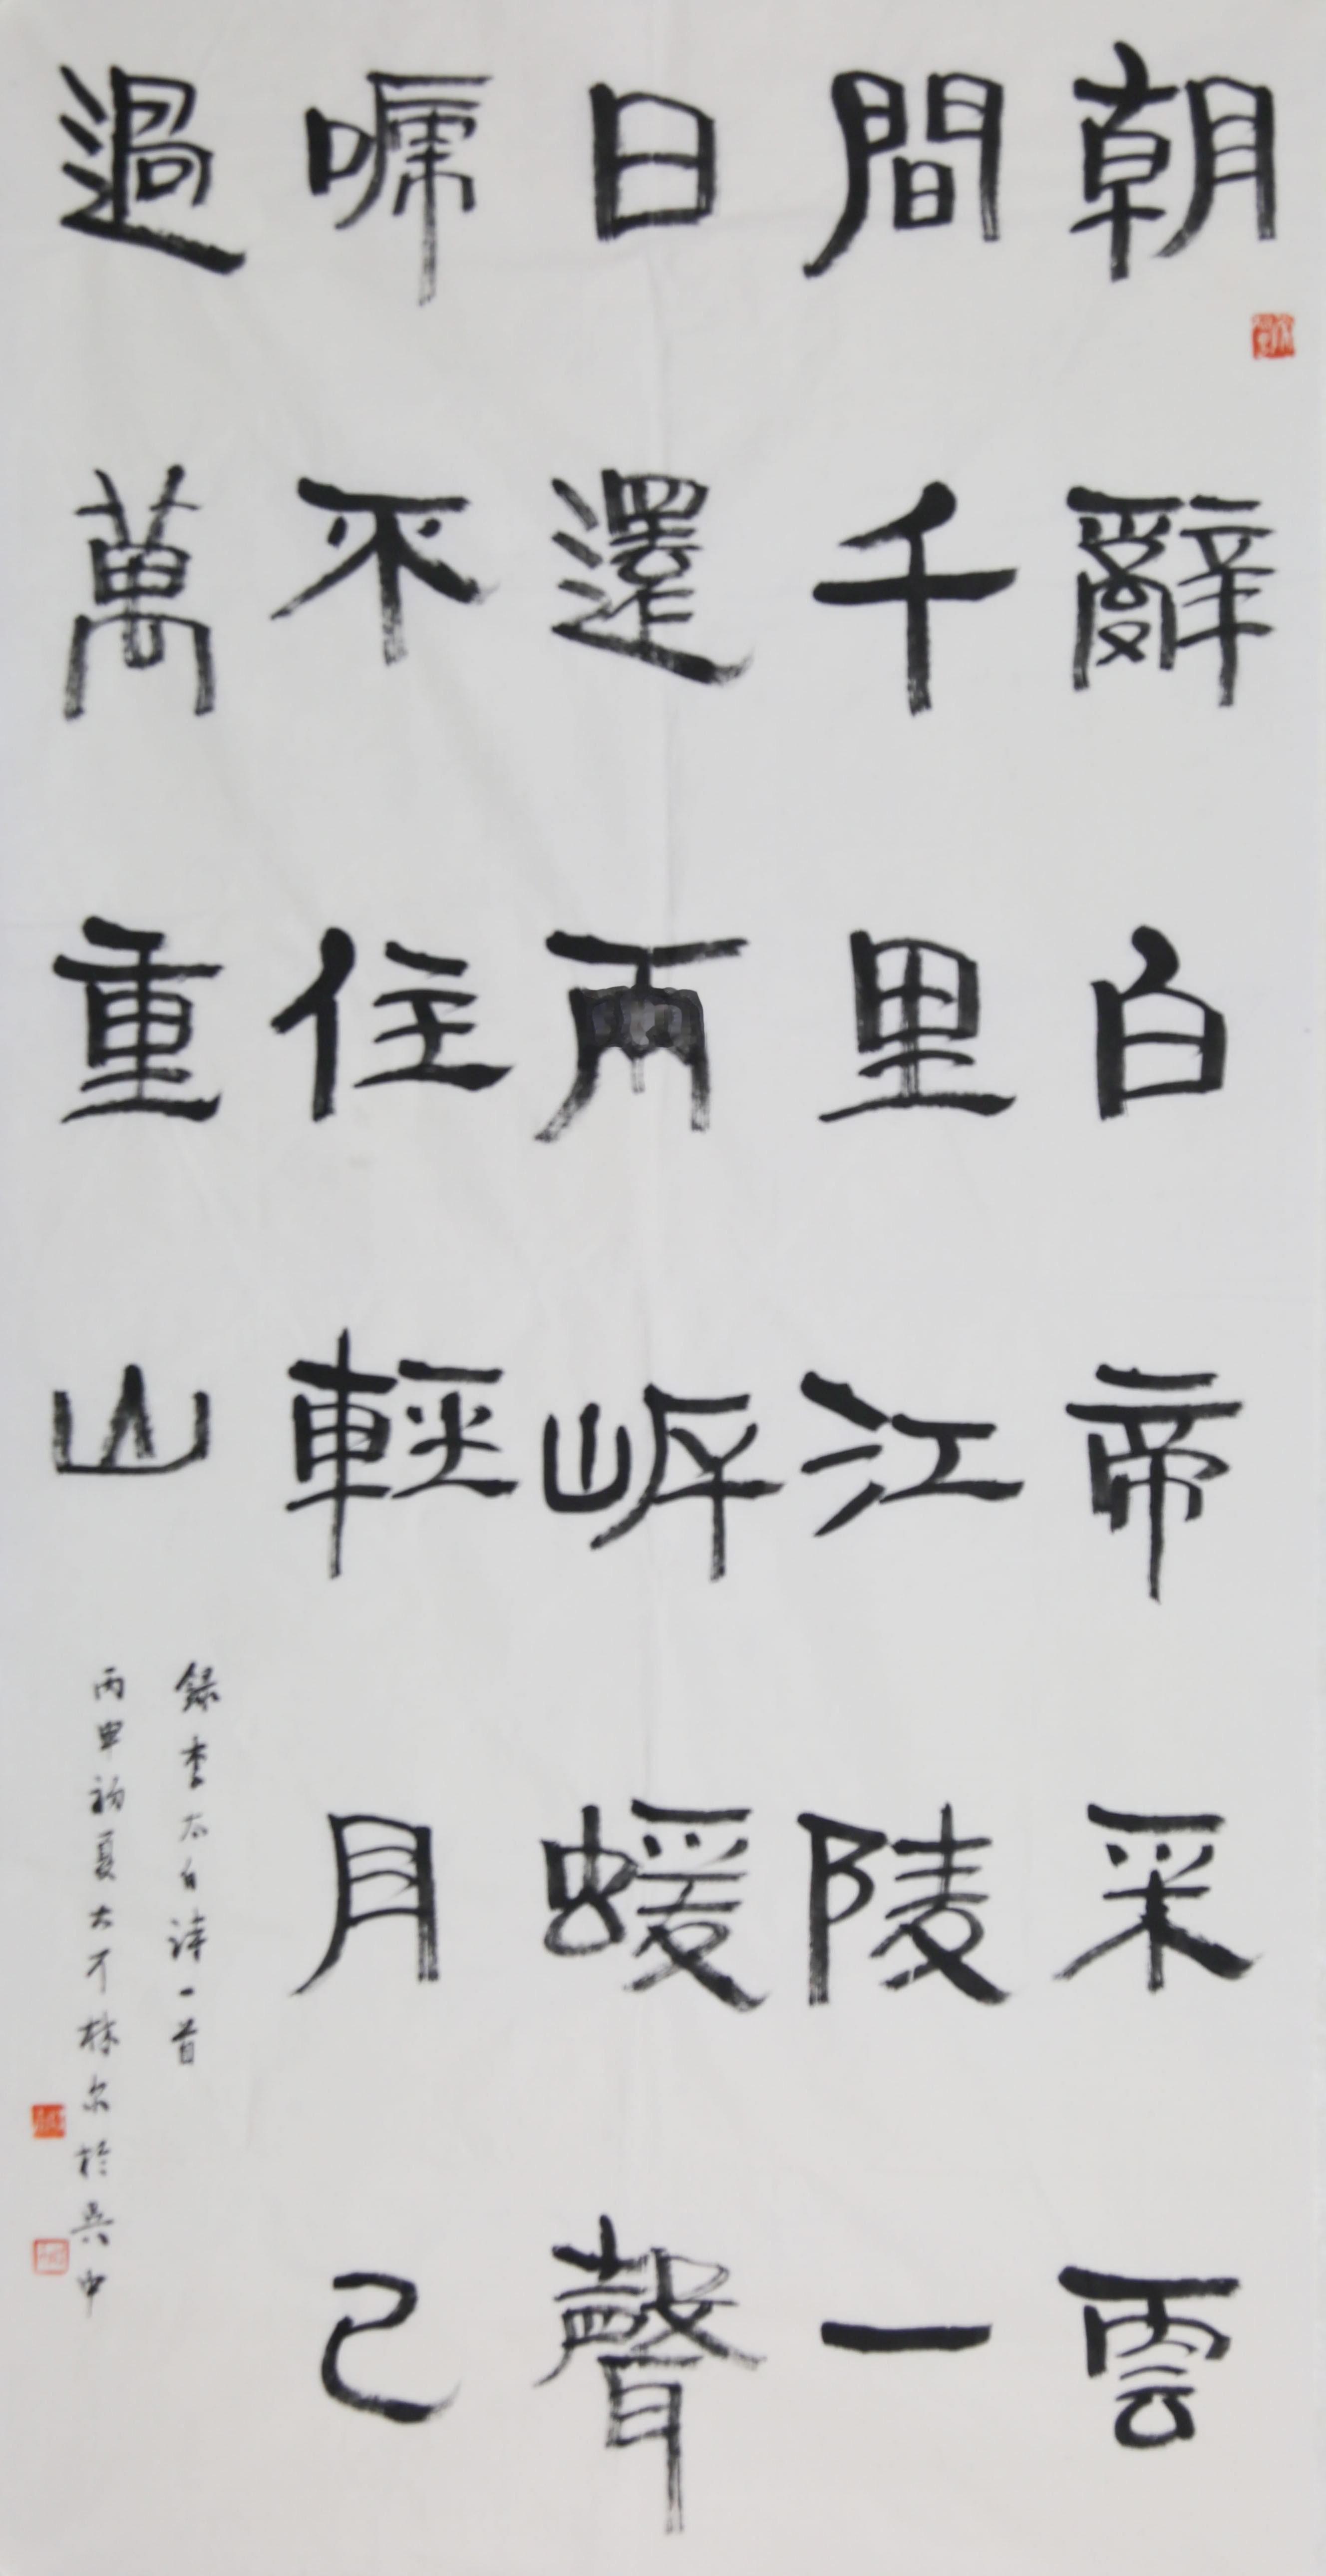 朝辭白帝采雲
間千里江陵一
日還岸蝯聲
啼不住輕舟已
過萬重山
錄李太白詩一首
丙申初夏大不於吳中